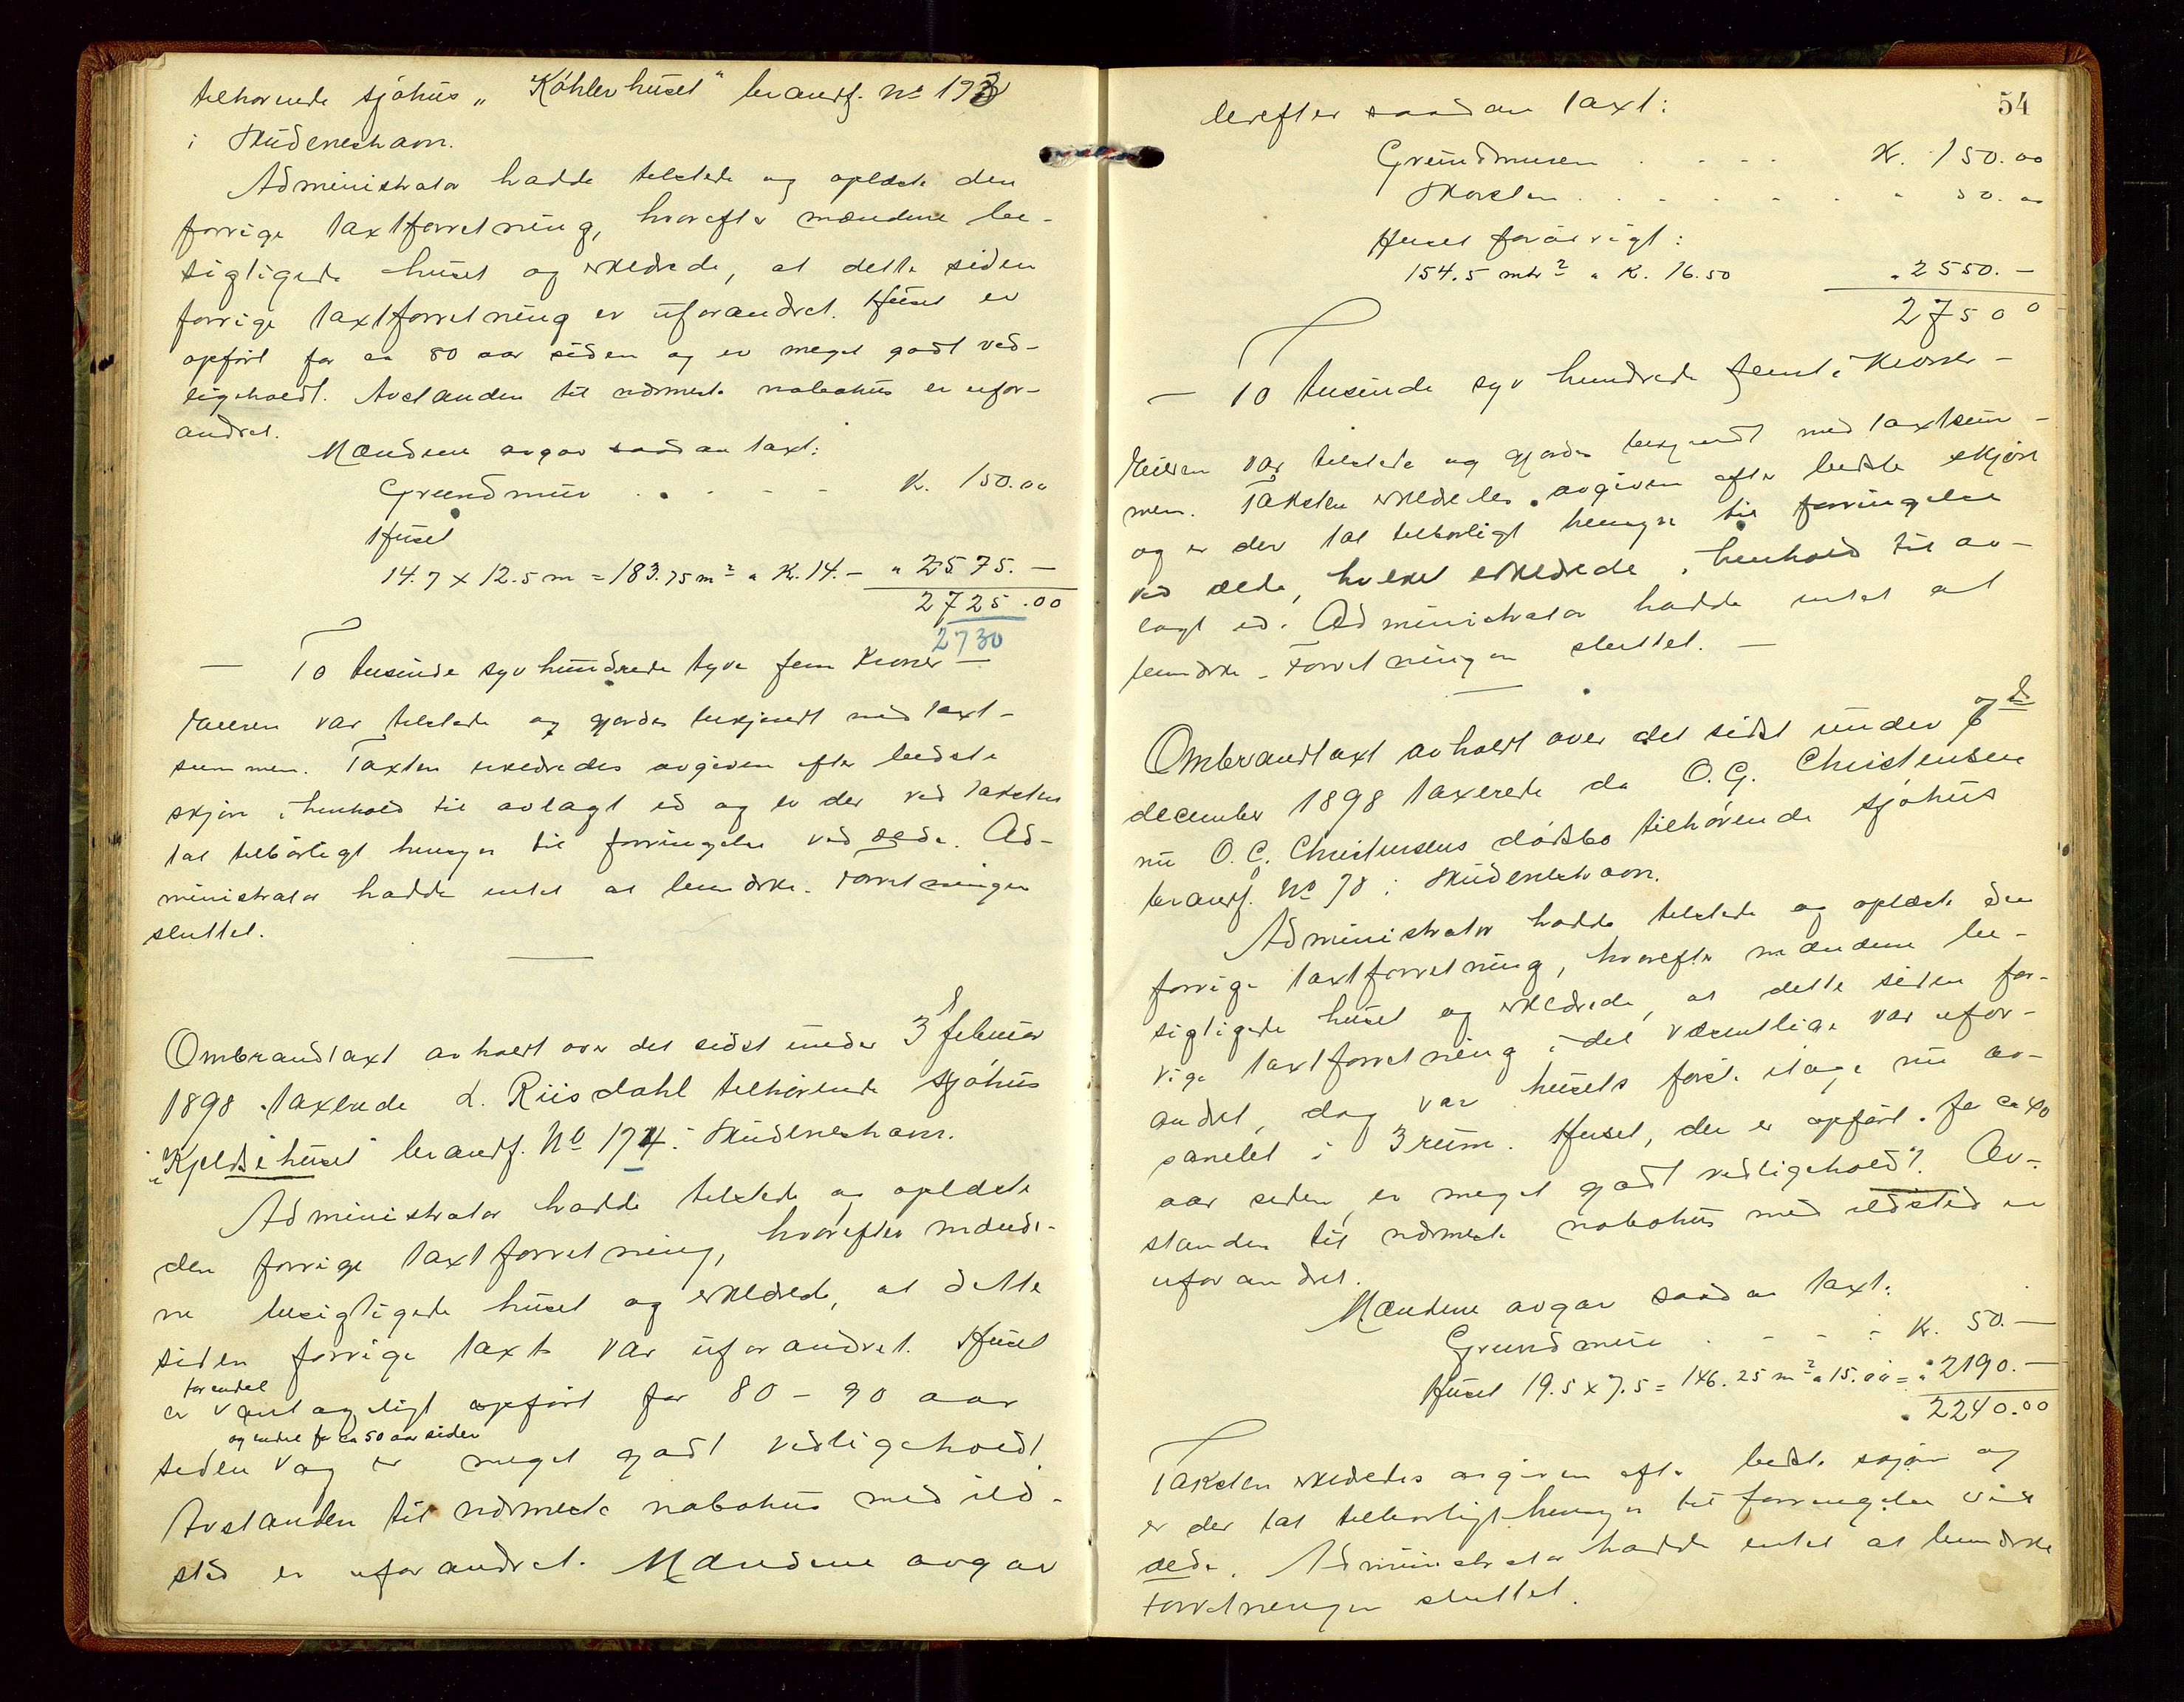 tilhørende sjøhus „Køhlerhuset" brandf. No 193
i Skudeneshavn.
Administrator hadde tilstede og oplæste den
forrige taxtforretning, hvorefter mændene be-
sigtigede huset og erklærede, at dette siden
forrige taxtforretning er uforandret. Huset er
opført for ca 80 aar siden og er meget godt ved-
ligeholdt. Avstanden til nærmeste nabohus er ufor-
andret.
Mændene avgav saadan taxt:
Grundmur . . - - - K. 150.00
Huset
14.7 x 12.5 m = 183.75 m2 a K. 14. – " 2575. –
2725.00
2730
– To tusinde syv hundrede tyve fem Kroner –
Eieren var tilstede og gjordes bekjendt med taxt-
summen. Taxten erklæredes avgiven efter bedste
skjøn i henhold til avlagt ed og er der ved taksten
tat tilbørligt hensyn til forringelse ved ælde. Ad-
ministrator hadde intet at bemærke. Forretningen
sluttet.
Ombrandtaxt avholdt over det sidst under 3d februar
1898 taxerede L. Riisdahl tilhørende sjøhus
"Kjeldsehuset" brandf. No 174 i Skudeneshavn.
Administrator hadde tilstede og oplæste
den forrige taxtforretning, hvorefter mænde-
ne besigtigede huset og erklærede, at dette
siden forrige taxt var uforandret. Huset
for endel
er antageligt opført for 80 – 90 aar
og endel for ca 50 aar siden
siden og er meget godt vedligeholdt.
Avstanden til nærmeste nabohus med ild-
sted er uforandret. Mændene avgav
54
derefter saadan taxt:
Grundmuren . - - - K. 150.00
Skorsten . . . . . . " 50.00
Huset forøvrigt:
154.5 mtr2 a K. 16.50 " 2550. –
2750 0
– To tusinde syv hundrede femti Kroner –
Eieren var tilstede og gjordes bekjendt med taxtsum-
men. Taksten erklæredes avgiven efter bedste skjøn
og er der tat tilbørligt hensyn til forringelse
ved ælde, hvilket erklærede i henhold til av-
lagt ed. Administrator hadde intet at
bemærke. Forretningen sluttet. –
Ombrandtaxt avholdt over det sidst under 7d
december 1898 taxerede da O. G. Christensen
nu O. G. Christensens dødsbo tilhørende sjøhus
brandf. No 78 i Skudeneshavn.
Administrator hadde tilstede og oplæste den
forrige taxtforretning, hvorefter mændene be-
sigtigede huset og erklærede, at dette siden for-
rige taxtforretning i det væsentlige var ufor-
andret, dog var husets første etage nu av-
panelet i 3 rum. Huset, der er opført for ca 40
aar siden, er meget godt vedligeholdt. Av-
standen til nærmeste nabohus med ildsted er
uforandret.
Mændene avgav saadan taxt:
Grundmur - - - K. 50. –
Huset 19.5 x 7.5 = 146.25 m2 a 15.00 = " 2190. –
" 2240.00
Taksten erklæredes avgiven efter bedste skjøn og
er der tat tilbørligt hensyn til forringelse ved
ælde. Administrator hadde intet at bemærke
Forretningen sluttet.